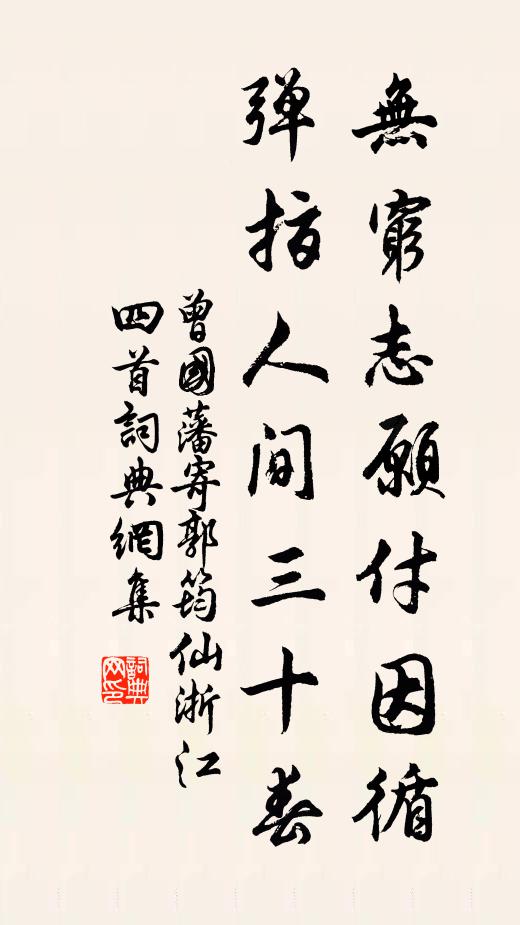 無窮志願付因循
弹指人间三十春
曾國藩寄郭筠仙浙江
四首詞典網集
詞典网印